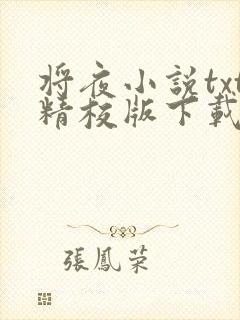 将夜小説txt
精校版下載
張鳳荣